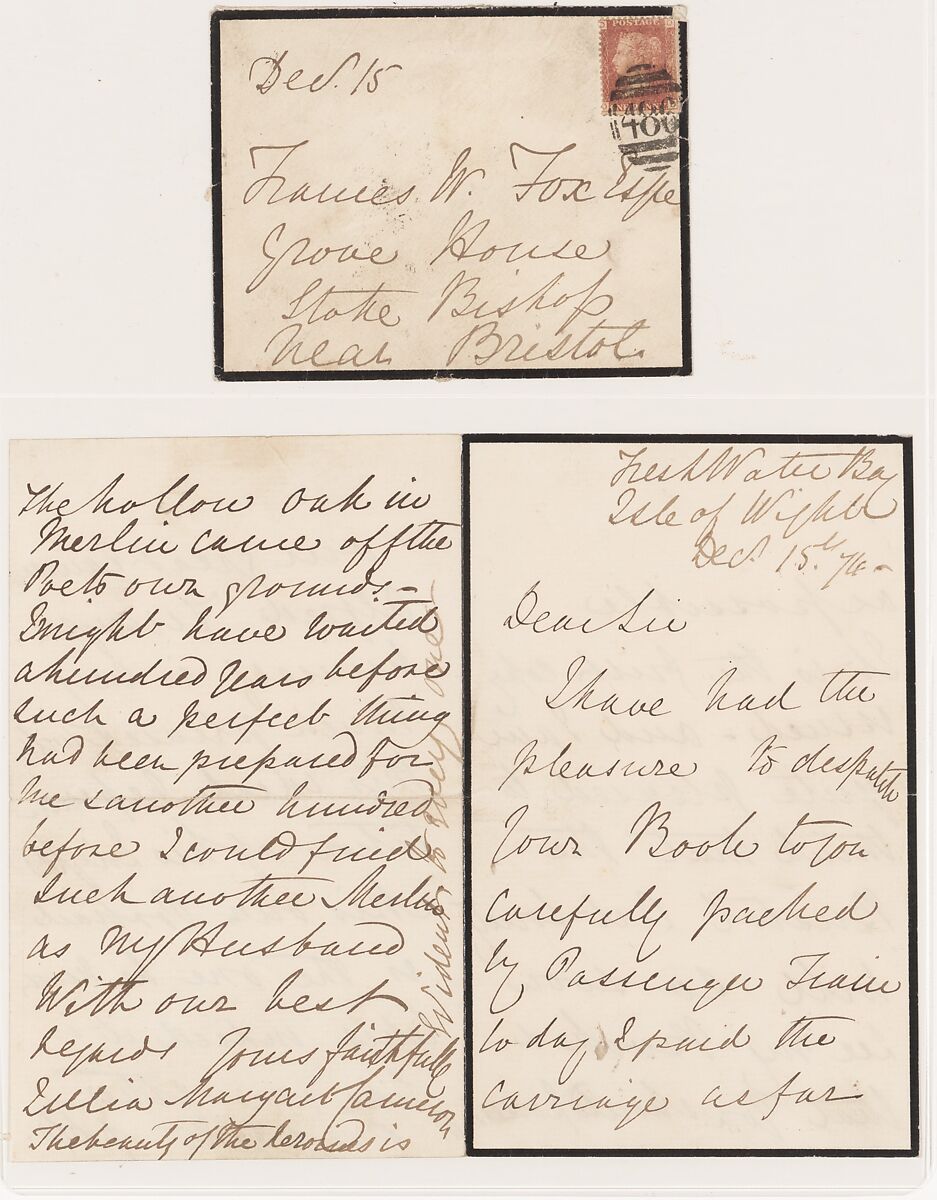 Dec. 15
POSTAGE
ONE PENNY
Frances W. Fox Esqre
Grove House
Stoke Bishop
Near Bristol.
Fresh Water Bay
Isle of Wight
Decr 15th 74 -
Dear Sir
I have had the
pleasure to despatch
Your Book to you
carefully packed
by Passenger Train
to day I paid the
carriage as far
The hollow oak in
Merlin came off the
Poets own grounds -
I might have waited
a hundred years before
such a perfect thing
had been prepared for
me & another hundred
before I could find
such another Merlin
as My Husband
With our best
regards Yours faithfully
Julia Margaret Cameron
The beauty of the is
Evident to every one